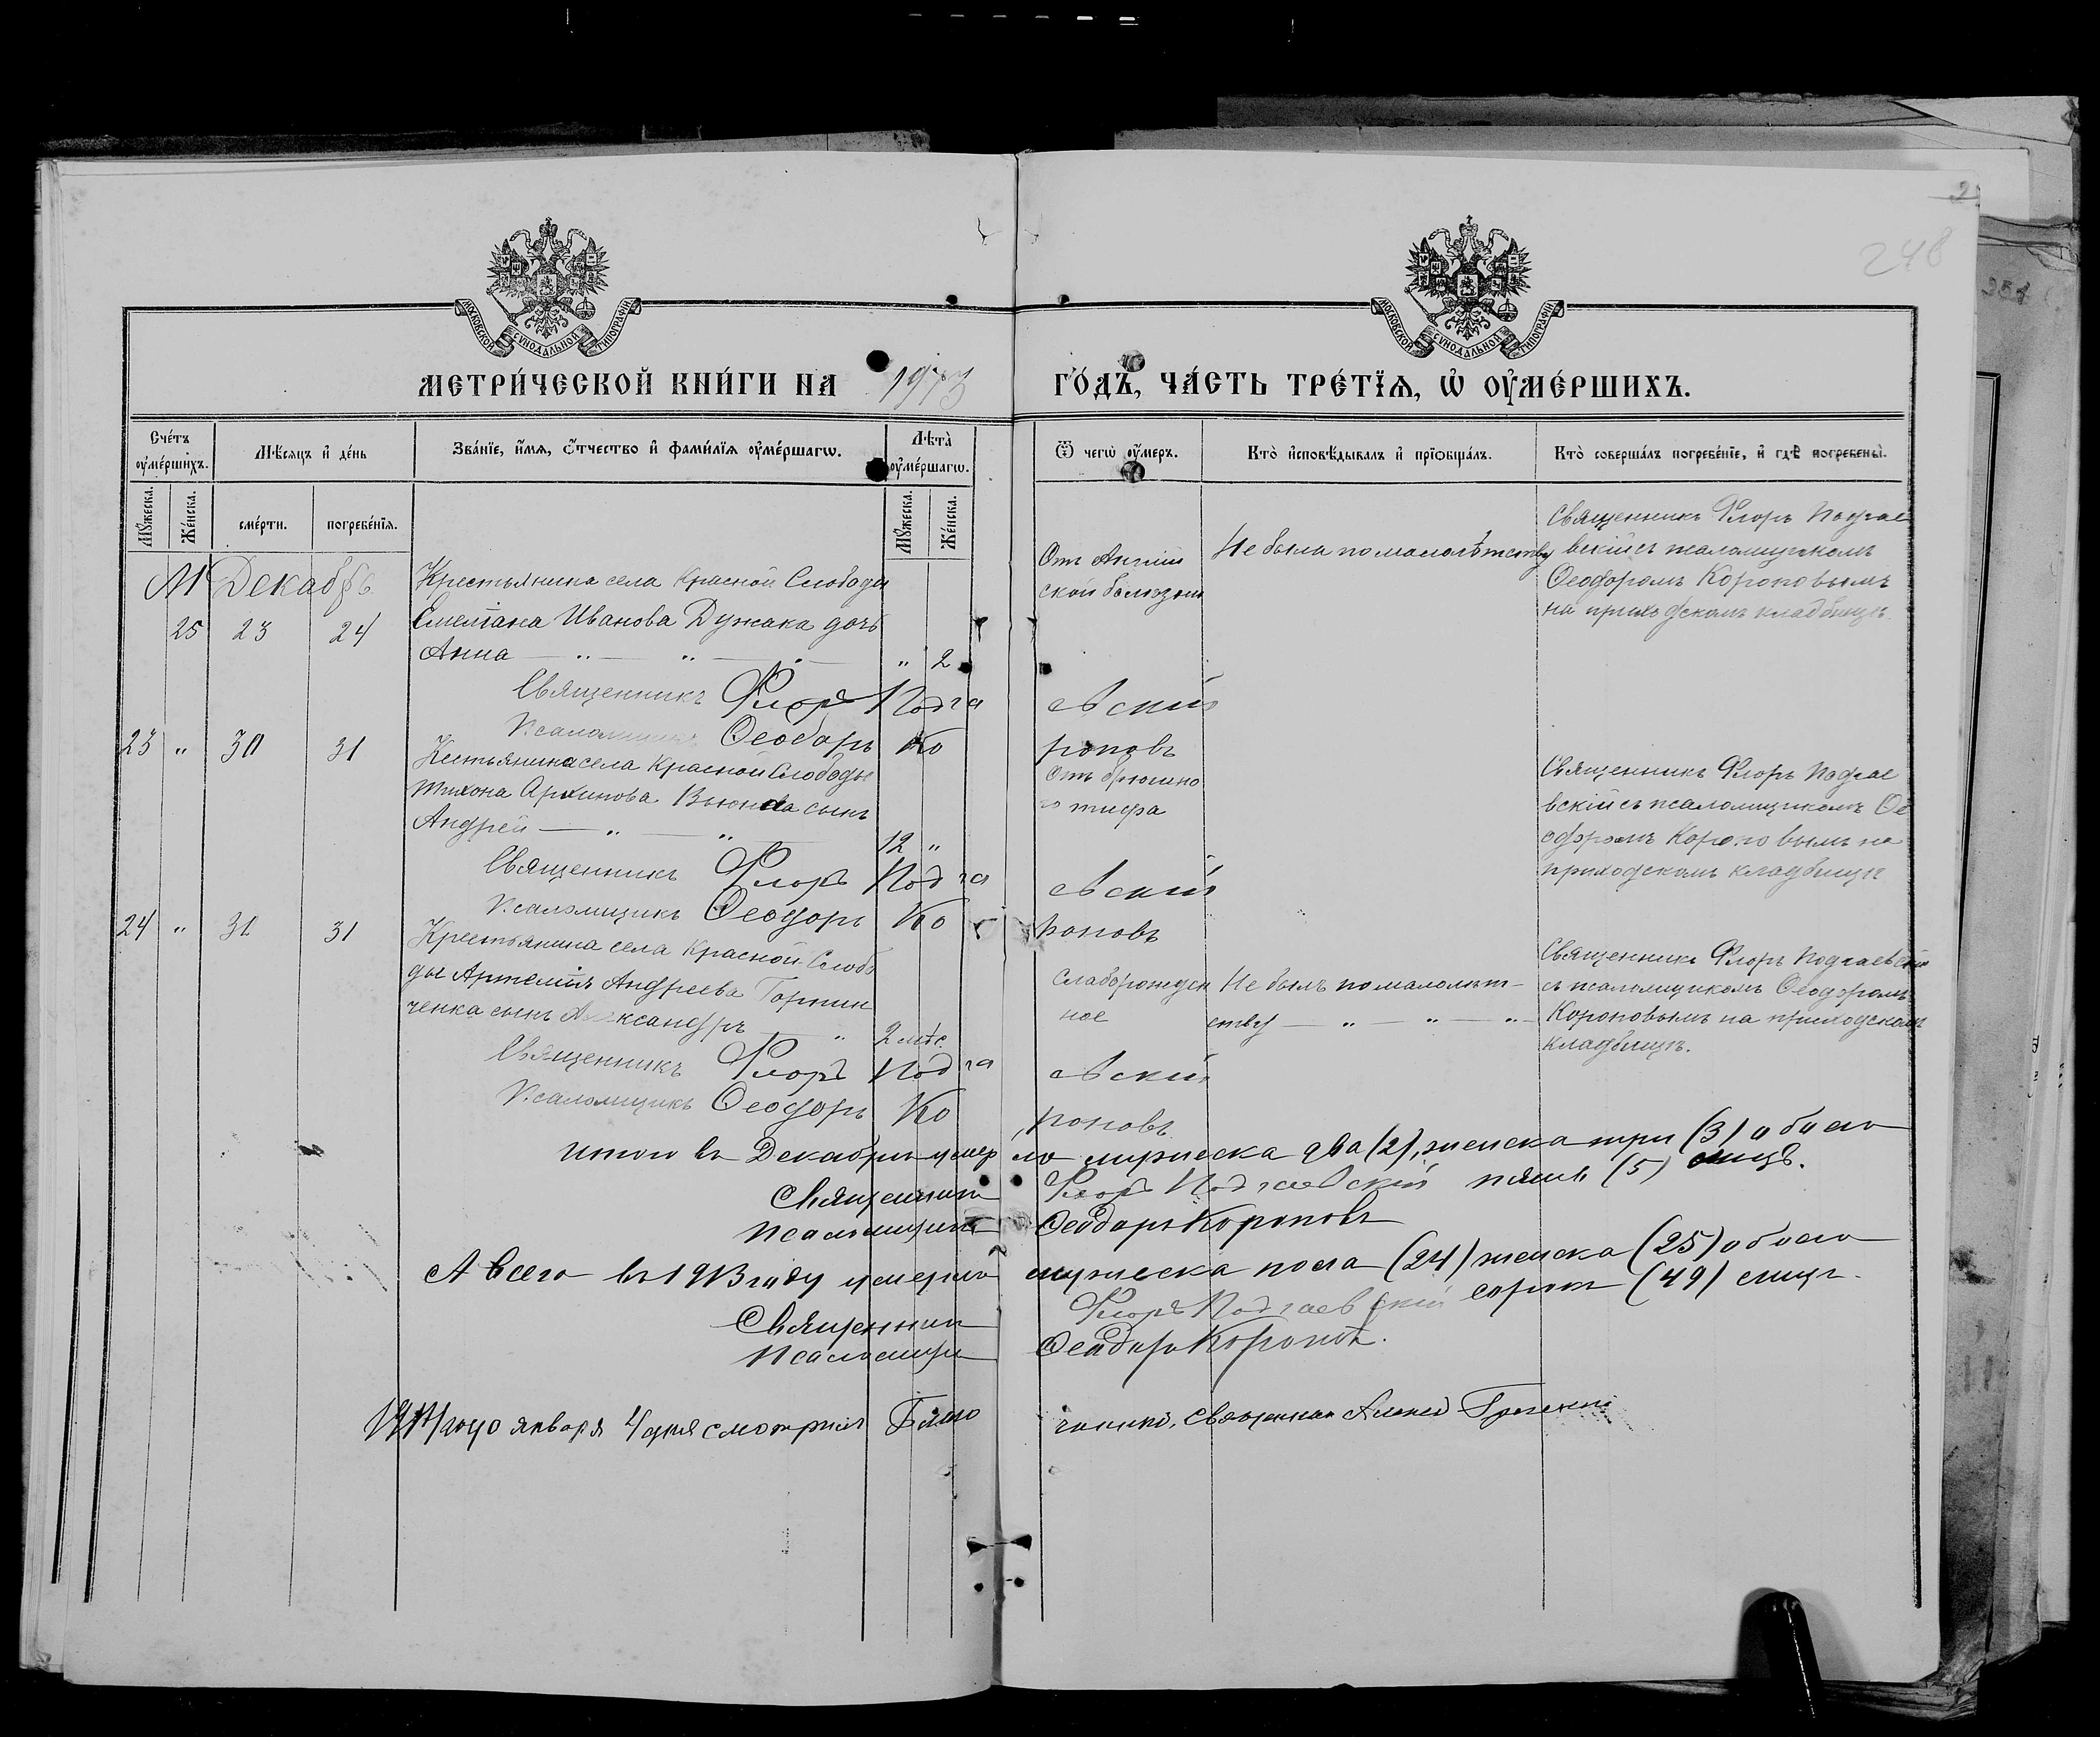 МОСКОВСКОЙ СУНОДАЛЬНОЙ ТИПОГРАФІИ
МОСКОВСКОЙ СУНОДАЛЬНОЙ ТИПОГРАФІИ
248
МЕТРИ́ЧЕСКОЙ КНИ́ГИ НА 1913 ГО́ДЪ, ЧА́СТЬ ТРЕ́ТЇѦ, Ѡ҆ ОУ҆МЕ́РШИХЪ.
Сче́тъ оу҆ме́ршихъ.
Мѣ́сяцъ и҆ де́нь
Зва́нїе, и҆́мѧ, ѻ҆́тчество и҆ фами́лїѧ оу҆ме́ршагѡ.
Лѣ̀та̀ оу҆ме́ршагѡ.
Ѿ чегѡ̀ оу҆́меръ.
Кто̀ и҆сповѣ́дывалъ и҆ прїѻбща́лъ.
Кто̀ соверша́лъ погребе́нїе, и҆ гдѣ̀ погребены̀.
Мꙋ́жеска.
Же́нска.
сме́рти.
погребе́нїѧ.
Мꙋ́жеска.
Же́нска.
М Декабрь
25 23 24
Крестьянина села Красной Слободы
Стефана Иванова Дужака дочь
Анна — „ — „ — „ 2
От Англий
ской болѣзни
Не была по малолѣтству
Священникъ Флоръ Подгае
вскій съ псаломщикомъ
Ѳеодоромъ Короповымъ
на приходскомъ кладбищѣ.
Священникъ Флоръ Подгаевскій
Псаломщикъ Ѳеодоръ Короповъ
23 „ 30 31
Кестьянина села Красной Слободы
Тихона Архипова Вьюнка сынъ
Андрей — „ — „ 12 „
Отъ брюшно
го тифа
Священникъ Флоръ Подгае
вскій съ псаломщикомъ Ѳе
одоромъ Короповымъ на
приходскомъ кладбищѣ
Священникъ Флоръ Подгаевскій
Псаломщикъ Ѳеодоръ Короповъ
24 „ 31 31
Крестьянина села Красной Слобо
ды Артемія Андреева Горпин
ченка сынъ Александръ — „ 2 мѣс.
Слаборожден
ное
Не былъ по малолѣт-
ству — „ — „ — „
Священникъ Флоръ Подгаевскій
съ псаломщикомъ Ѳеодоромъ
Короповымъ на приходскомъ
кладбищѣ.
Священникъ Флоръ Подгаевскій
Псаломщикъ Ѳеодоръ Короповъ
Итого въ Декабрѣ умерло мужеска два (2), женска три (3) обоего
пять (5) лицъ.
Священникъ Флоръ Подгаевскій
Псаломщикъ Ѳеодоръ Короповъ
А всего въ 1913 году умерло мужеска пола (24) женска (25) обоего
сорокъ (49) лицъ.
Священникъ Флоръ Подгаевскій
Псаломщикъ Ѳеодоръ Короповъ.
1914 году января 4 дня смотрилъ Благочинный, Священникъ Алексѣй